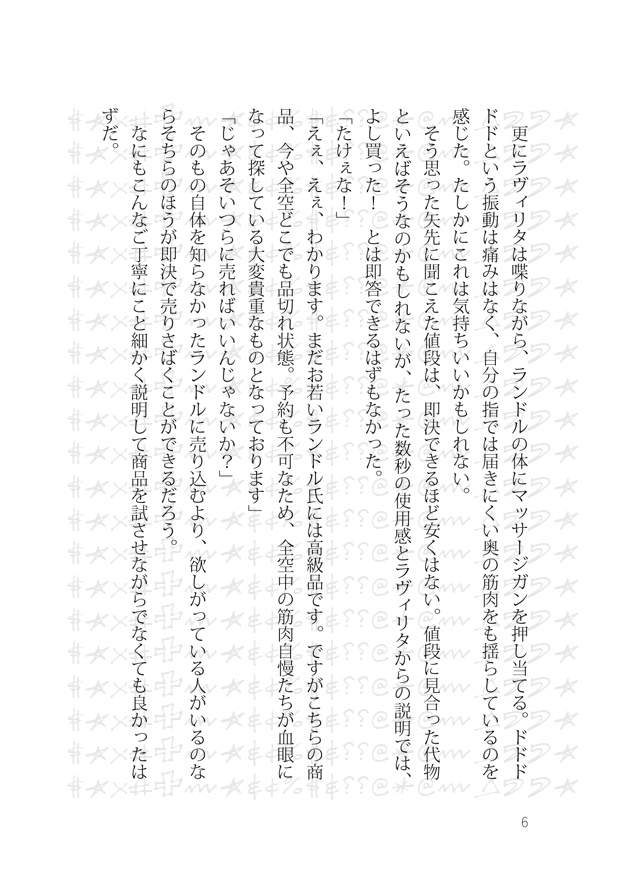 更にラヴィリタは喋りながら、ランドルの体にマッサージガンを押し当てる。ドドド
ドドという振動は痛みはなく、自分の指では届きにくい奥の筋肉をも揺らしているのを
感じた。たしかにこれは気持ちいいかもしれない。
そう思った矢先に聞こえた値段は、即決できるほど安くはない。値段に見合った代物
といえばそうなのかもしれないが、たった数秒の使用感とラヴィリタからの説明では、
よし買った！　とは即答できるはずもなかった。
「たけぇな！」
「えぇ、えぇ、わかります。まだお若いランドル氏には高級品です。ですがこちらの商
品、今や全空どこでも品切れ状態。予約も不可なため、全空中の筋肉自慢たちが血眼に
なって探している大変貴重なものとなっております」
「じゃあそいつらに売ればいいんじゃないか？」
そのもの自体を知らなかったランドルに売り込むより、欲しがっている人がいるのな
らそちらのほうが即決で売りさばくことができるだろう。
なにもこんなご丁寧にこと細かく説明して商品を試させながらでなくても良かったは
ずだ。
6